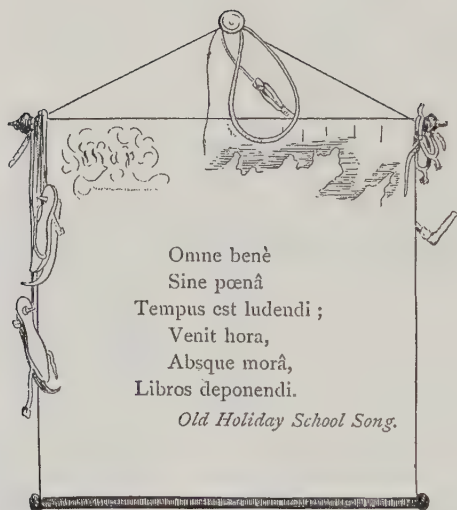 Omne benè
Sine pœnâ
Tempus est ludendi ;
Venit hora,
Absque morâ,
Libros deponendi.
Old Holiday School Song.